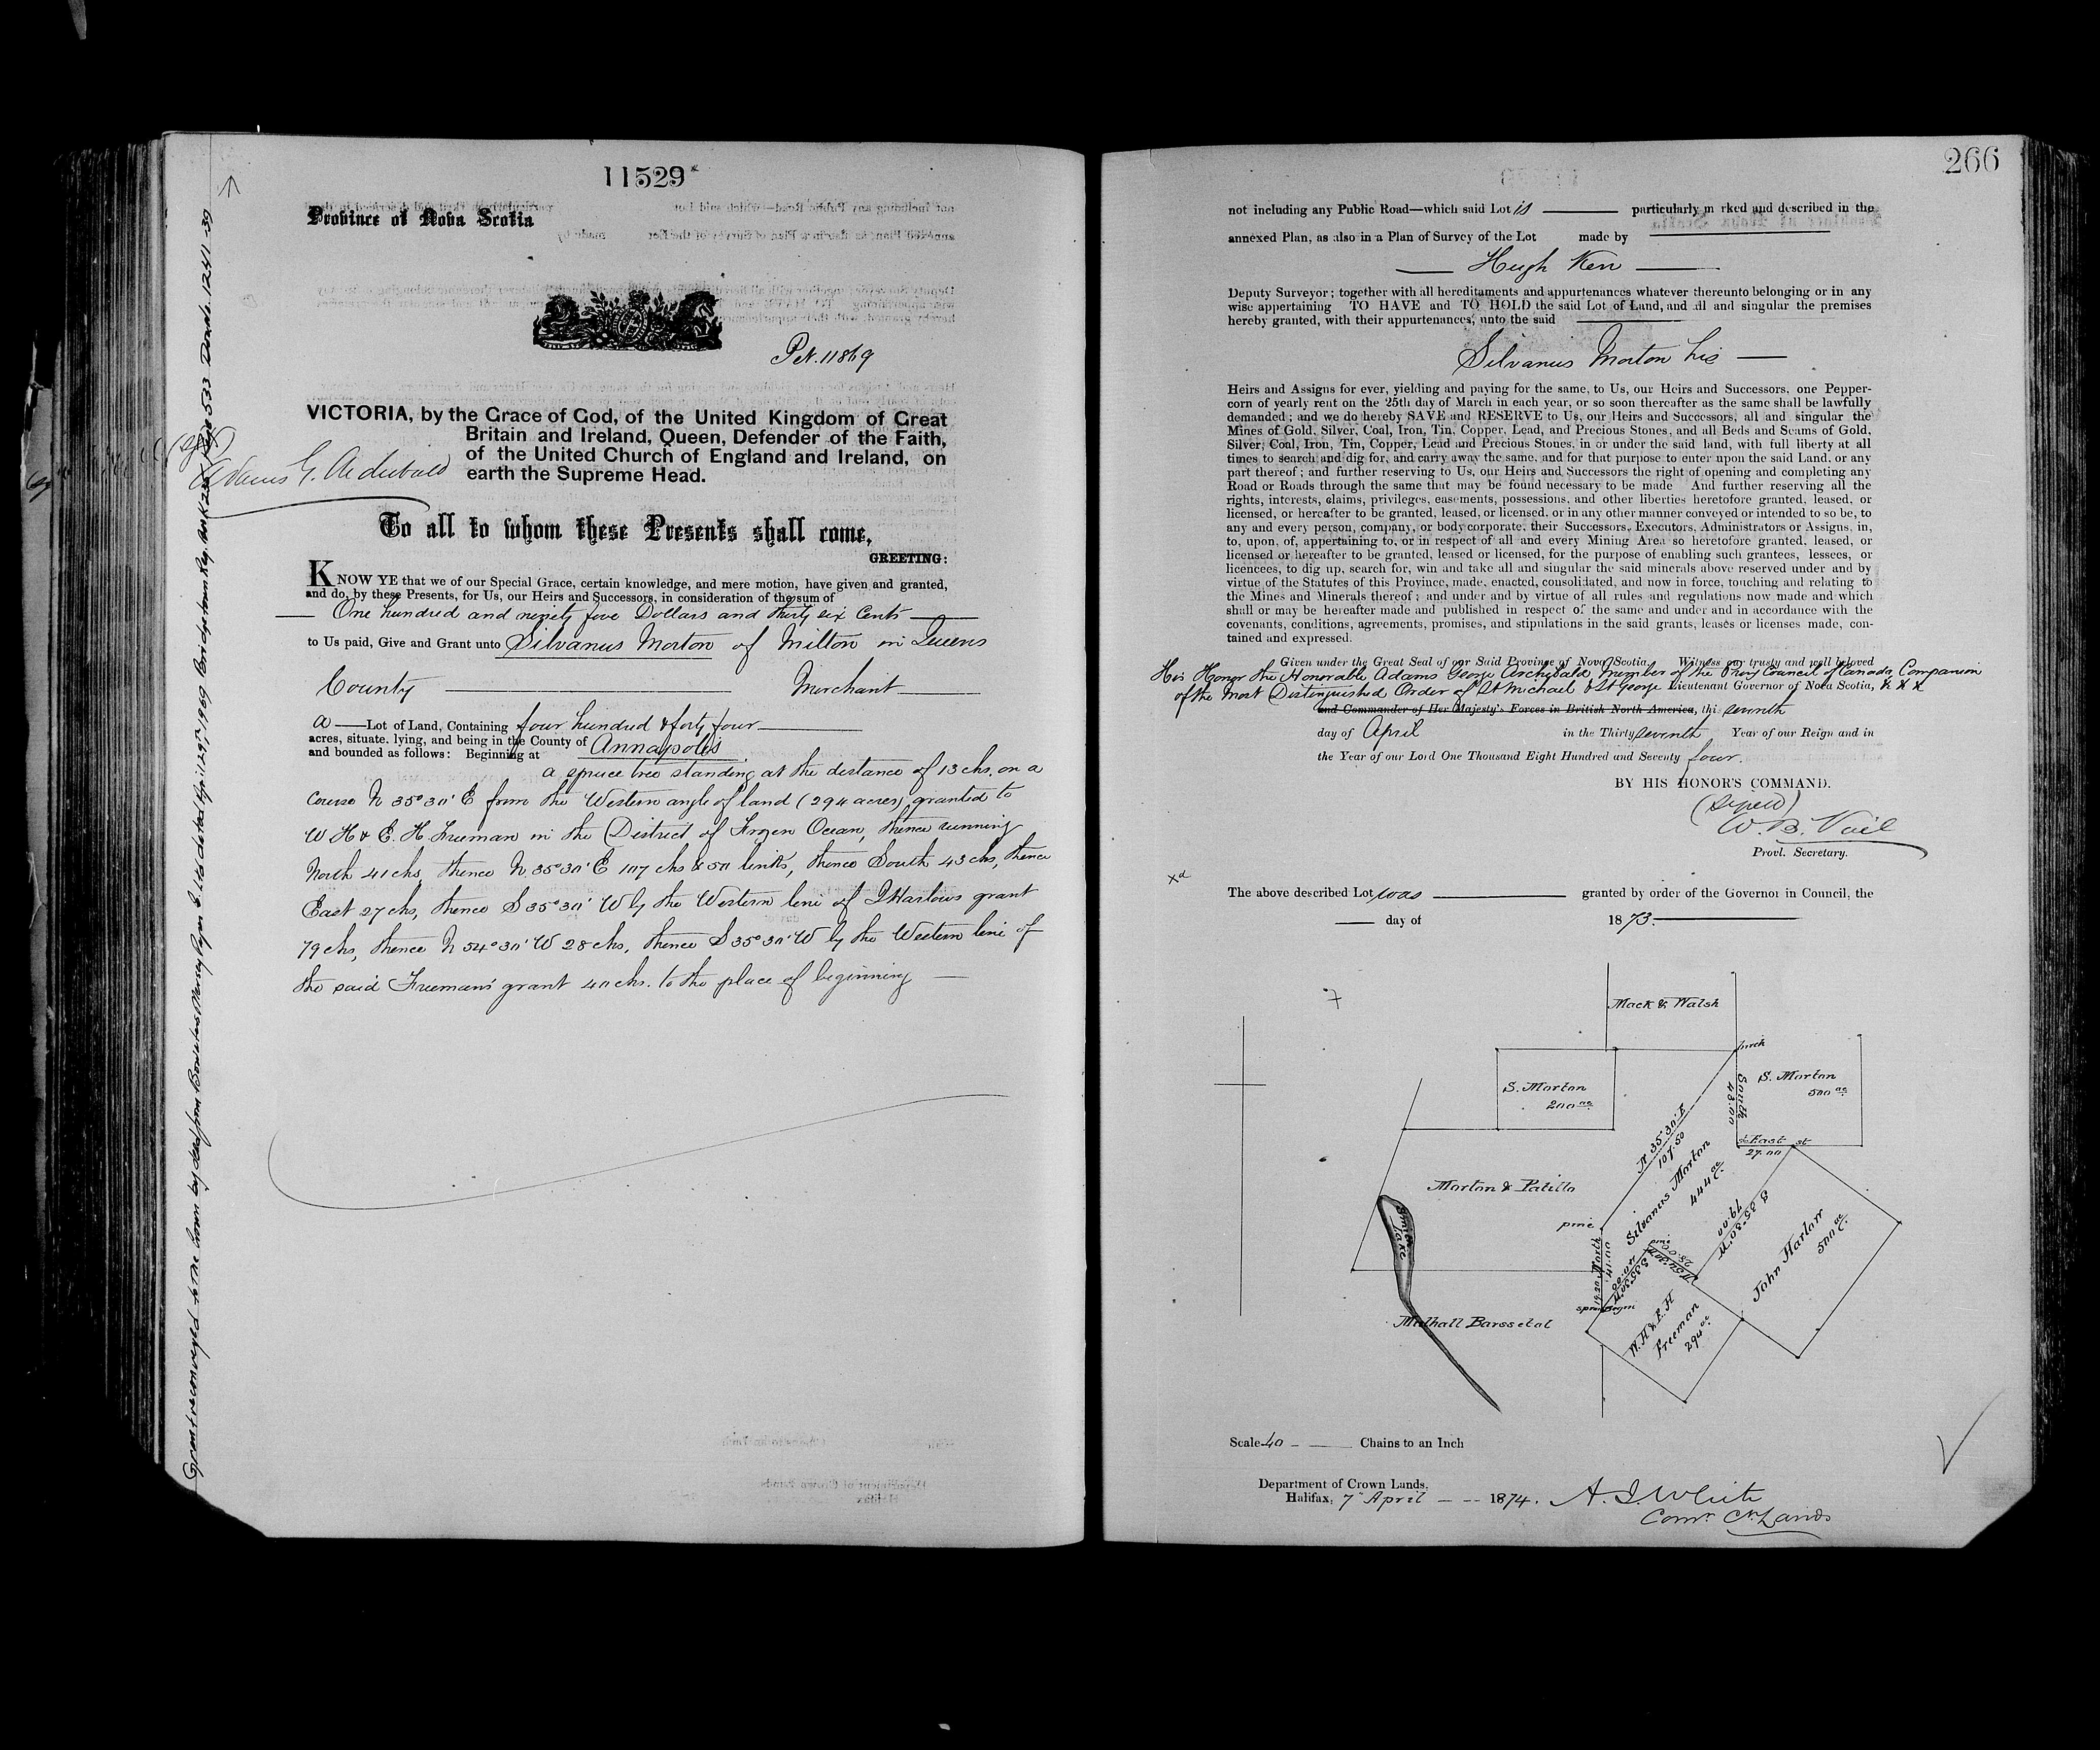 11529
Province of Nova Scotia
Pet. 11869
VICTORIA, by the Grace of God, of the United Kingdom of Great
Britain and Ireland, Queen, Defender of the Faith,
of the United Church of England and Ireland, on
earth the Supreme Head.
(Sgd)
Adams G. Archibald
To all to whom these Presents shall come,
GREETING:
KNOW YE that we of our Special Grace, certain knowledge, and mere motion, have given and granted,
and do, by these Presents, for Us, our Heirs and Successors, in consideration of the sum of
One hundred and ninety five Dollars and thirty six Cents
to Us paid, Give and Grant unto Silvanus Morton of Milton in Queens
County Merchant
a Lot of Land, Containing four hundred & forty four
acres, situate, lying, and being in the County of Annapolis
and bounded as follows: Beginning at
a spruce tree standing at the distance of 13 chs. on a
course N 35° 30' E from the Western angle of land (294 acres) granted to
W H & E. H Freeman in the District of Frozen Ocean, thence running
North 41 chs, thence N 35° 30' E 107 chs & 50 links, thence South 43 chs, thence
East 27 chs, thence S 35° 30' W by the Western line of J Harlows grant
79 chs, thence N 54° 30' W 28 chs, thence S 35° 30' W by the Western line of
the said Freeman's grant 40 chs. to the place of beginning
Grant reconveyed to the Crown by deed from Bowaters Mersey Paper Co. Ltd dated April 29th, 1969 Bridgetown Reg. Bk 238 Page 533 Doncde. 12411-39
266
not including any Public Road—which said Lot is particularly m rked and described in the
annexed Plan, as also in a Plan of Survey of the Lot made by
Hugh Kerr
Deputy Surveyor; together with all hereditaments and appurtenances whatever thereunto belonging or in any
wise appertaining TO HAVE and TO HOLD the said Lot of Land, and all and singular the premises
hereby granted, with their appurtenances, unto the said
Silvanus Morton his
Heirs and Assigns for ever, yielding and paying for the same, to Us, our Heirs and Successors, one Pepper-
corn of yearly rent on the 25th day of March in each year, or so soon thereafter as the same shall be lawfully
demanded; and we do hereby SAVE and RESERVE to Us, our Heirs and Successors, all and singular the
Mines of Gold, Silver, Coal, Iron, Tin, Copper, Lead, and Precious Stones, and all Beds and Seams of Gold,
Silver, Coal, Iron, Tin, Copper, Lead and Precious Stones, in or under the said land, with full liberty at all
times to search and dig for, and carry away the same, and for that purpose to enter upon the said Land, or any
part thereof; and further reserving to Us, our Heirs and Successors the right of opening and completing any
Road or Roads through the same that may be found necessary to be made And further reserving all the
rights, interests, claims, privileges, easements, possessions, and other liberties heretofore granted, leased, or
licensed, or hereafter to be granted, leased, or licensed, or in any other manner conveyed or intended to so be, to
any and every person, company, or body corporate, their Successors, Executors, Administrators or Assigns, in,
to, upon, of, appertaining to, or in respect of all and every Mining Area so heretofore granted, leased, or
licensed or hereafter to be granted, leased or licensed, for the purpose of enabling such grantees, lessees, or
licencees, to dig up, search for, win and take all and singular the said minerals above reserved under and by
virtue of the Statutes of this Province, made, enacted, consolidated, and now in force, touching and relating to
the Mines and Minerals thereof; and under and by virtue of all rules and regulations now made and which
shall or may be hereafter made and published in respect of the same and under and in accordance with the
covenants, conditions, agreements, promises, and stipulations in the said grants, leases or licenses made, con-
tained and expressed.
Given under the Great Seal of our Said Province of Nova Scotia. Witness our trusty and well beloved
His Honor the Honorable Adams George Archibald Member of the Privy Council of Canada, Companion
of the most Distinguished Order of St Michael & St George Lieutenant Governor of Nova Scotia, & & &
and Commander of Her Majesty's Forces in British North America, thi seventh
day of April in the Thirty seventh Year of our Reign and in
the Year of our Lord One Thousand Eight Hundred and Seventy four.
BY HIS HONOR'S COMMAND.
(Signed)
W. B. Vail
Provl. Secretary.
xd
The above described Lot was granted by order of the Governor in Council, the
day of 1873.
Mack & Walsh
birch
S. Morton
200 ac
South
43.00
S. Morton
500 ac
East
27.00
N 35° 30' E
107.50
Silvanus Morton
444 ac
Morton & Patillo
pine
North
41.00
S 35° 30' W
79.00
John Harlow
500 ac
pine
N 54° 30' W
28.00
S 35° 30' W
40.00
Lake
W. H & E. H
Freeman
294 ac
Scale 40 Chains to an Inch
Department of Crown Lands,
Halifax, 7" April 1874.
Comr. Cn. Lands